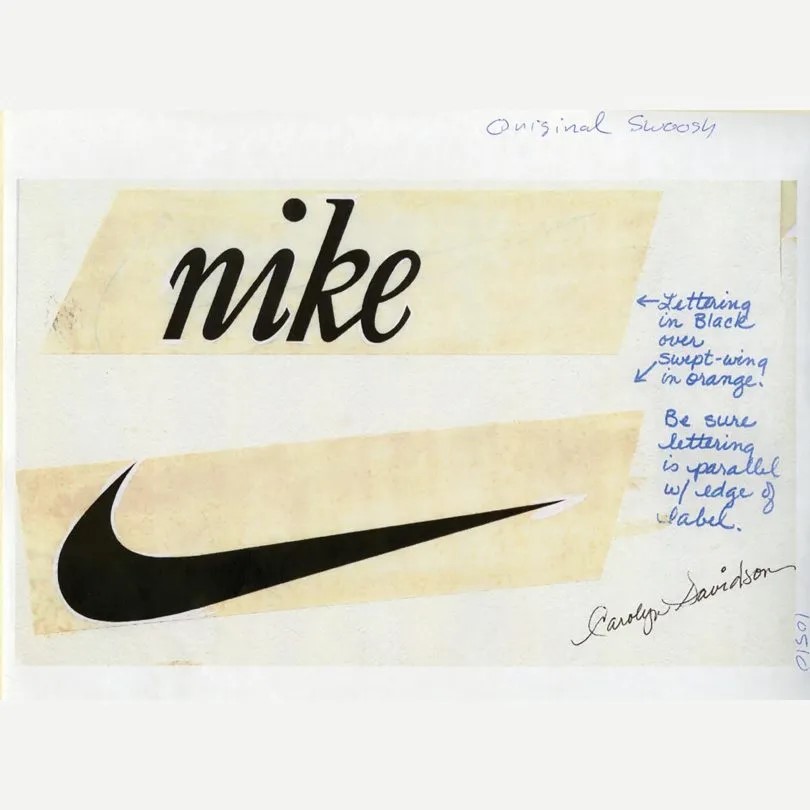 Original Swoosh
nike
← Lettering
in Black
over
swept-wing
↙ in orange.
Be sure
lettering
is parallel
w/ edge of
label.
Carolyn Davidson
10510